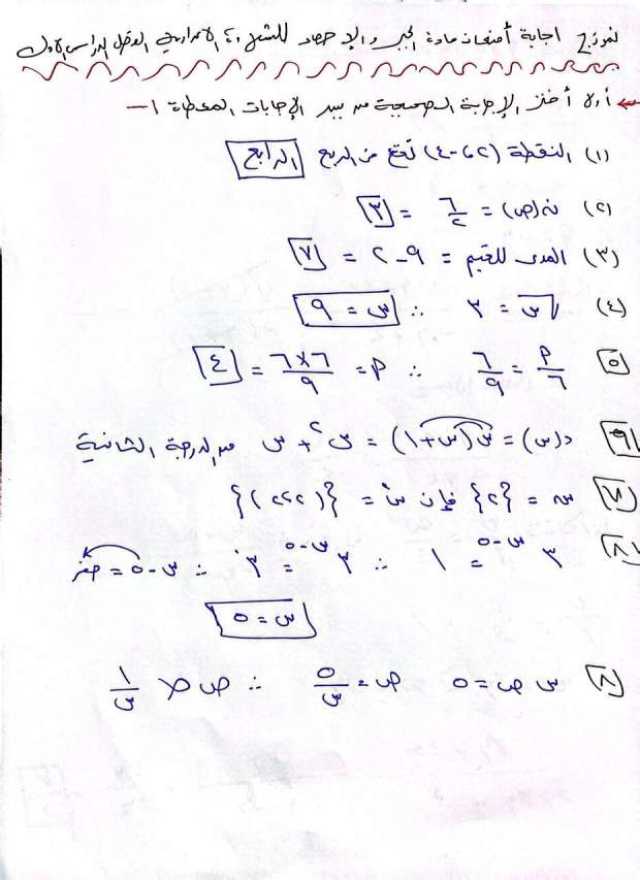 نموذج اجابة أمتحان مادة الجبر والإحصاء للشهر ٢٠ الاعدادية الفصل الدراسى الاول
أولا أختر الإجابة الصحيحة من بين الإجابات المعطاة :-
(١) النقطة (٢ ، -٤) تقع فى الربع الرابع
(٢) ن(ص) = ٦/٢ = ٣
(٣) المدى للقيم = ٩ - ٢ = ٧
(٤) √س = ٣ ∴ س = ٩
٥ م/٦ = ٦/٩ ∴ م = ٦×٦/٩ = ٤
٦ د(س) = س(س+١) = س٢ + س من الدرجة الثانية
٧ س = {٢} فإن س٢ = {(٢،٢)}
٨ ٣ س-٥ = ١ ∴ ٣ س-٥ = ٣٠ ∴ س-٥ = صفر
س = ٥
٨ س ص = ٥ ص = ٥/س ∴ ص ∝ ١/س